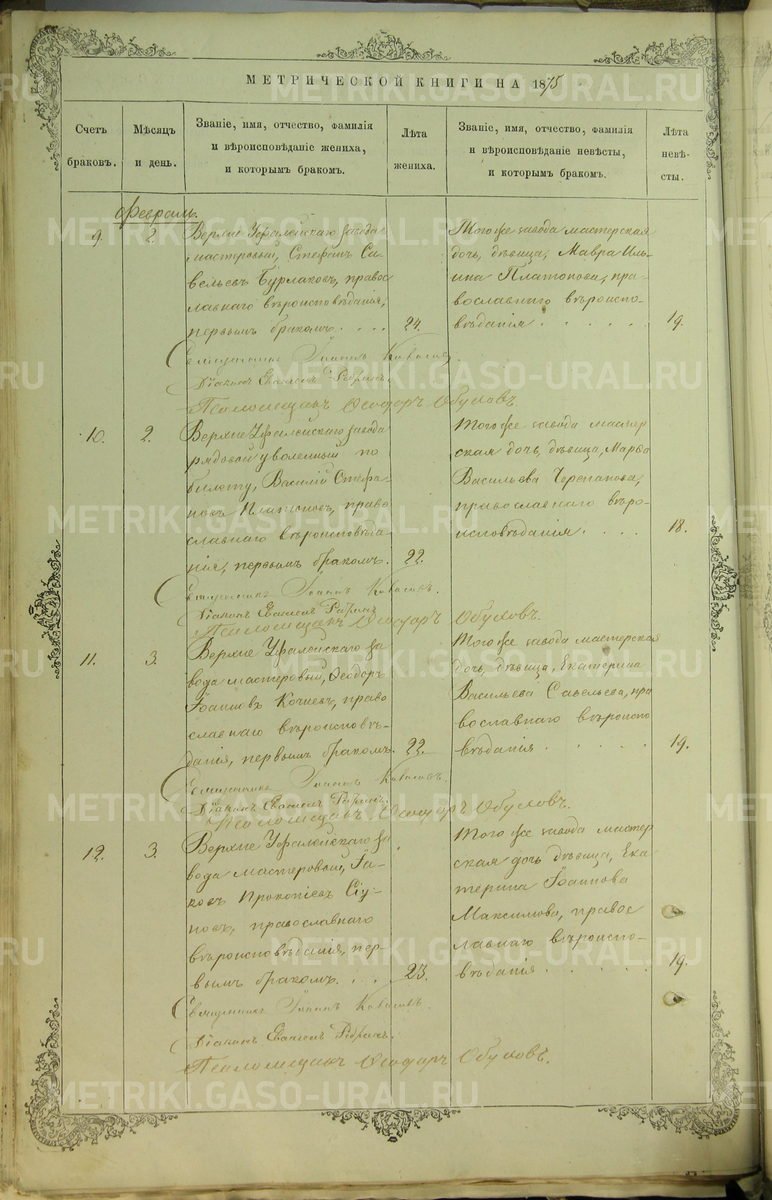 МЕТРИЧЕСКОЙ КНИГИ НА 1875
Счетъ браковъ.
Мѣсяцъ и день.
Званіе, имя, отчество, фамилія
и вѣроисповѣданіе жениха,
и которымъ бракомъ.
Лѣта жениха.
Званіе, имя, отчество, фамилія
и вѣроисповѣданіе невѣсты,
и которымъ бракомъ.
Лѣта невѣ-
сты.
Февраль.
9.
2
Верхне Уфалейскаго завода
мастеровый, Стефанъ Са-
вельевъ Бурлаковъ, правос
лавнаго вѣроисповѣданія,
первымъ бракомъ. . . .
24.
Того же завода мастерская
дочь, дѣвица, Мавра Иль-
ина Платонова, пра-
вославнаго вѣроиспо-
вѣданія . . . . . .
19.
Священникъ Іоаннъ
Діаконъ Евгеній
Псаломщикъ Ѳеодоръ Обуховъ.
10.
2.
Верхне Уфалейскаго завода
рядовой уволенный по
билету, Василій Стефа-
новъ право
славнаго вѣроисповѣда-
нія, первымъ бракомъ.
22.
Того же завода мастер
ская дочь, дѣвица, Марѳа
Васильева Черепанова,
православнаго вѣро-
исповѣданія . . . .
18.
Священникъ Іоаннъ
Діаконъ Евгеній
Псаломщикъ Ѳеодоръ Обуховъ.
11.
3.
Верхне Уфалейскаго за
вода мастеровый, Ѳеодоръ
Іоанновъ право
славнаго вѣроисповѣ-
данія, первымъ бракомъ.
22.
Того же завода мастерская
дочь, дѣвица, Екатерина
Васильева Савельева, пра
вославнаго вѣроиспо
вѣданія . . . . .
19.
Священникъ Іоаннъ
Діаконъ Евгеній
Псаломщикъ Ѳеодоръ Обуховъ.
12.
3.
Верхне Уфалейскаго за
вода мастеровый, Іа-
ковъ Прокопіевъ
православнаго
вѣроисповѣданія, пер-
вымъ бракомъ. . .
23.
Того же завода мастер
ская дочь дѣвица, Ека
терина Іоаннова
Максимова, правос
лавнаго вѣроиспо-
вѣданія . . . . .
19.
Священникъ Іоаннъ
Діаконъ Евгеній
Псаломщикъ Ѳеодоръ Обуховъ.
METRIKI.GASO-URAL.RU